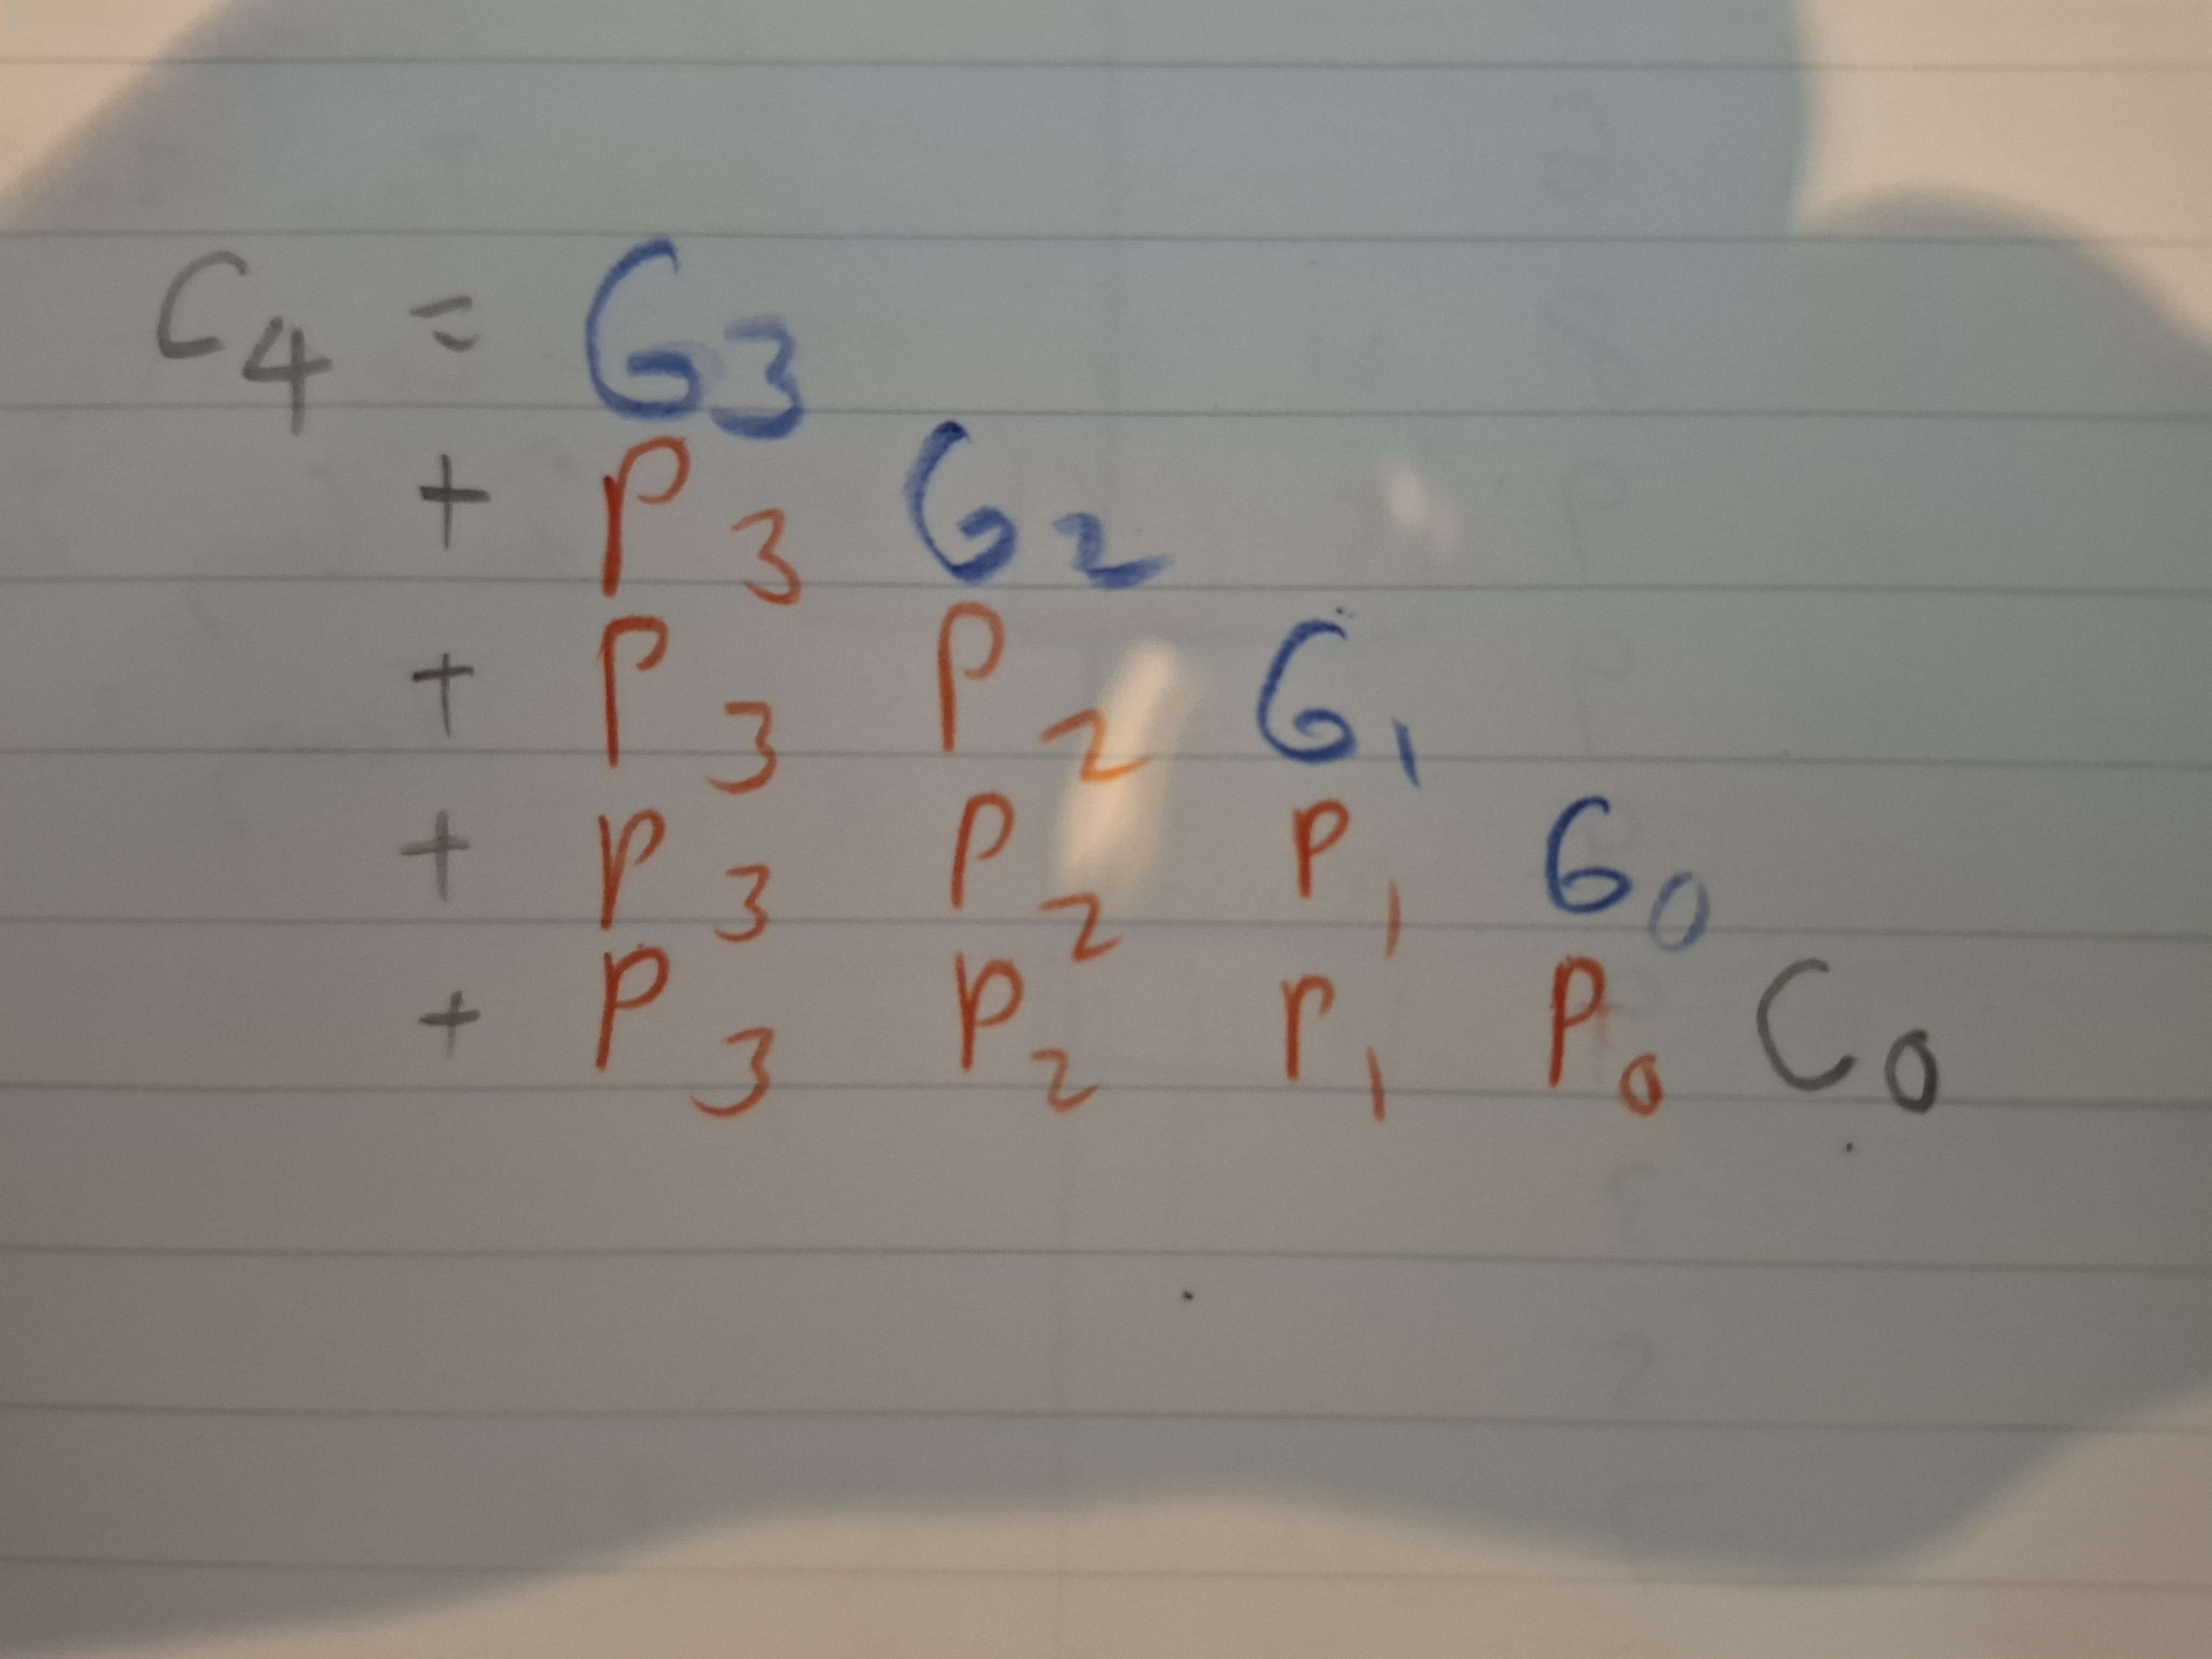 C₄ = G₃
+ P₃ G₂
+ P₃ P₂ G₁
+ P₃ P₂ P₁ G₀
+ P₃ P₂ P₁ P₀ C₀